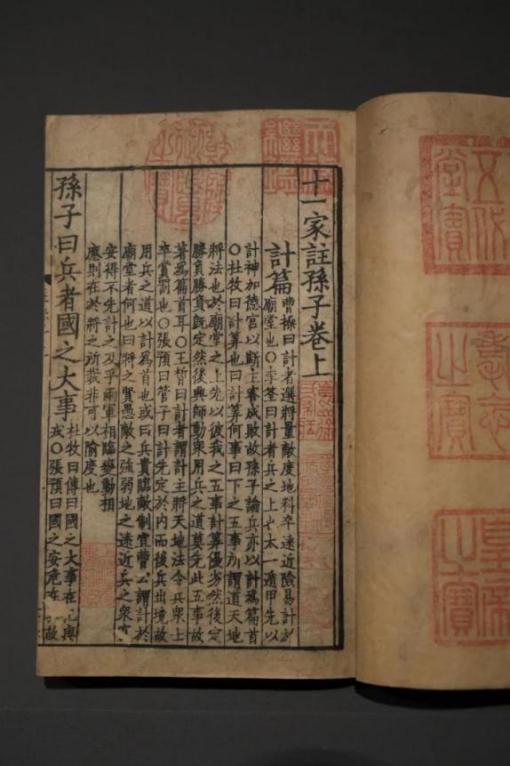 皇帝
之寶
天祿
繼鑑
十一家註孫子卷上
計篇
曹操曰計者選將量敵度地料卒遠近險易計於
廟堂也○李筌曰計者兵之上也太一遁甲先以
計神加德宮以斷主客成敗故孫子論兵亦以計爲篇首
○杜牧曰計算也曰計算何事曰下之五事所謂道天地
將法也於廟堂之上先以彼我之五事計算優劣然後定
勝負勝負既定然後興師動衆用兵之道莫先此五事故
著爲篇首耳○王晳曰計者謂計主將天地法令兵衆士
卒賞罰也○張預曰管子曰計先定於內而後兵出境故
用兵之道以計爲首也或曰兵貴臨敵制宜曹公謂計於
廟堂者何也曰將之賢愚敵之強弱地之遠近兵之衆
安得不先計之及乎兩軍相臨變動相
應則在於將之所裁非可以隃度也
孫子曰兵者國之大事
杜牧曰傳曰國之大事在祀與
戎○張預曰國之安危在故